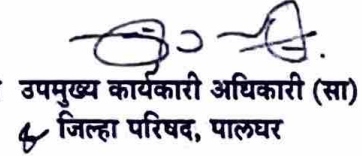 उपमुख्य कार्यकारी अधिकारी (सा)
जिल्हा परिषद, पालघर